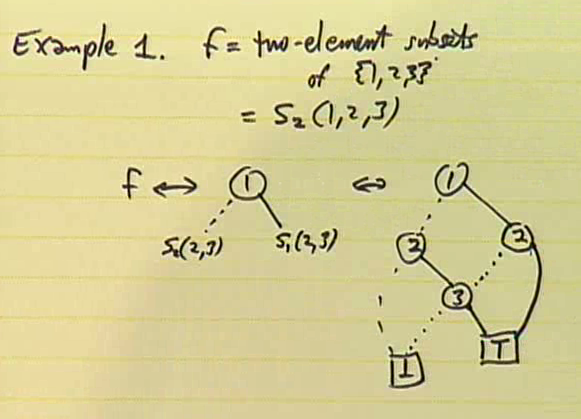 Example 1. f = two-element subsets
of {1,2,3}
= S₂(1,2,3)
f ↔ ① ↔ ①
S₂(2,3) S₁(2,3) ② ②
③
⊥ ⊤